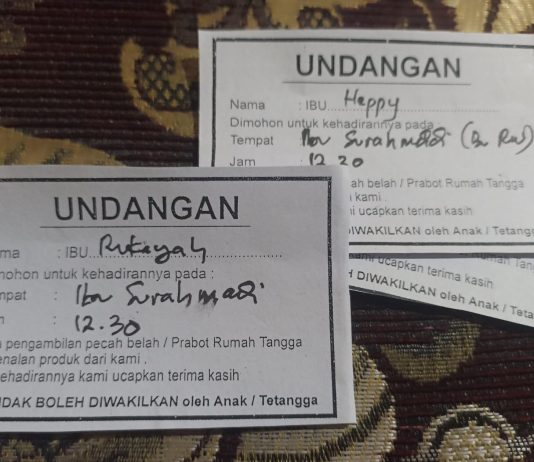 UNDANGAN
Nama : IBU Happy
Dimohon untuk kehadirannya pada :
Tempat Ibu Surahmadi
Jam : 12.30
cah belah / Prabot Rumah Tangga
i kami .
i ucapkan terima kasih
IWAKILKAN oleh Anak / Tetangg
UNDANGAN
ma : IBU Rukayah
mohon untuk kehadirannya pada :
mpat : Ibu Surahmadi
m : 12.30
a pengambilan pecah belah / Prabot Rumah Tangga
enalan produk dari kami .
kehadirannya kami ucapkan terima kasih
IDAK BOLEH DIWAKILKAN oleh Anak / Tetangga
kami ucapkan terima kasih
H DIWAKILKAN oleh Anak / Teta